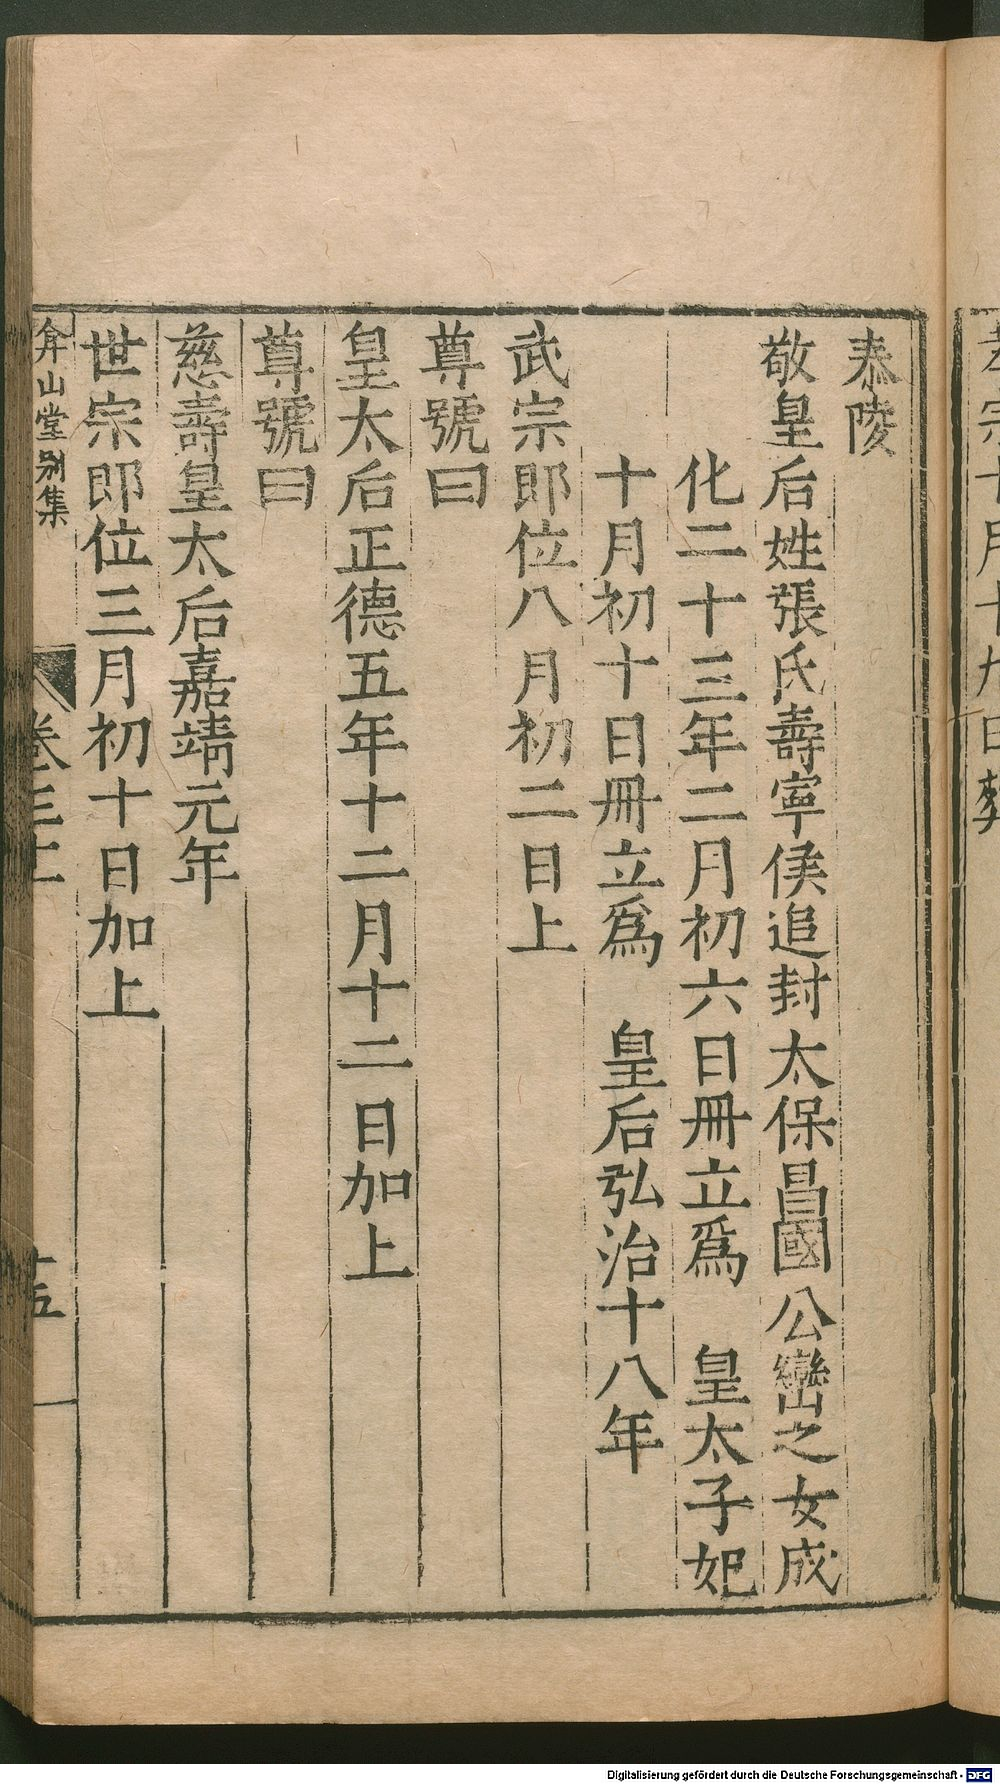 泰陵
敬皇后姓張氏壽寧侯追封太保昌國公巒之女成
化二十三年二月初六日冊立爲 皇太子妃
十月初十日冊立爲 皇后弘治十八年
武宗即位八月初二日上
尊號曰
皇太后正德五年十二月十二日加上
尊號曰
慈壽皇太后嘉靖元年
世宗即位三月初十日加上
弇山堂別集 卷三十一 十五
宗十月十九日
Digitalisierung gefördert durch die Deutsche Forschungsgemeinschaft - DFG